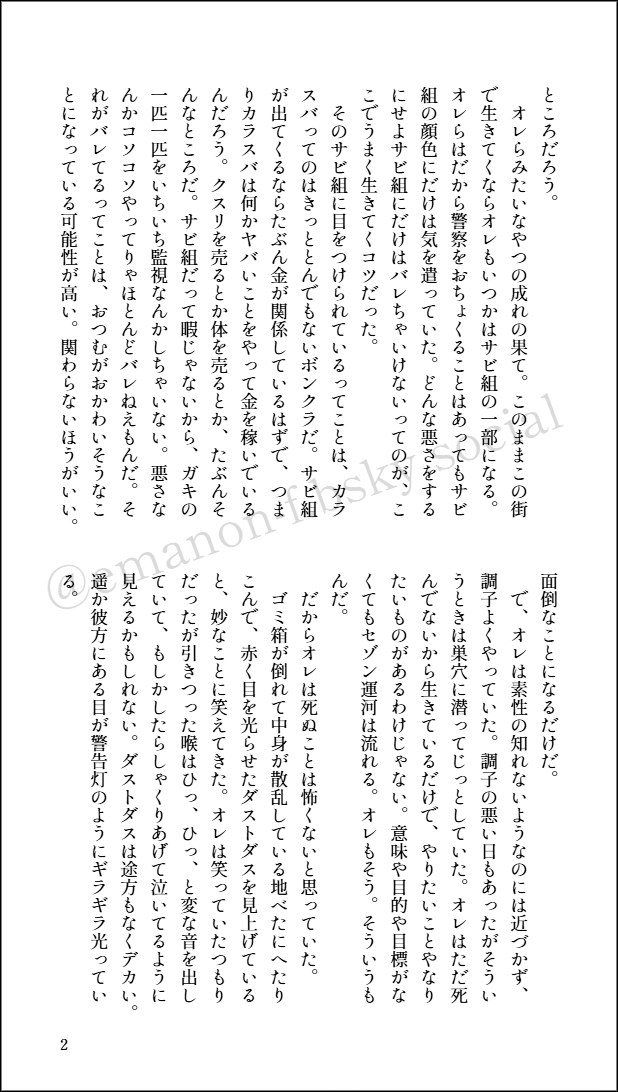 ところだろう。
　オレらみたいなやつの成れの果て。このままこの街
で生きてくならオレもいつかはサビ組の一部になる。
オレらはだから警察をおちょくることはあってもサビ
組の顔色にだけは気を遣っていた。どんな悪さをする
にせよサビ組にだけはバレちゃいけないってのが、こ
こでうまく生きてくコツだった。
　そのサビ組に目をつけられているってことは、カラ
スバってのはきっととんでもないボンクラだ。サビ組
が出てくるならたぶん金が関係しているはずで、つま
りカラスバは何かヤバいことをやって金を稼いでいる
んだろう。クスリを売るとか体を売るとか、たぶんそ
んなところだ。サビ組だって暇じゃないから、ガキの
一匹一匹をいちいち監視なんかしちゃいない。悪さな
んかコソコソやってりゃほとんどバレねえもんだ。そ
れがバレてるってことは、おつむがおかわいそうなこ
とになっている可能性が高い。関わらないほうがいい。
面倒なことになるだけだ。
　で、オレは素性の知れないようなのには近づかず、
調子よくやっていた。調子の悪い日もあったがそうい
うときは巣穴に潜ってじっとしていた。オレはただ死
んでないから生きているだけで、やりたいことやなり
たいものがあるわけじゃない。意味や目的や目標がな
くてもセゾン運河は流れる。オレもそう。そういうも
んだ。
　だからオレは死ぬことは怖くないと思っていた。
　ゴミ箱が倒れて中身が散乱している地べたにへたり
こんで、赤く目を光らせたダストダスを見上げている
と、妙なことに笑えてきた。オレは笑っていたつもり
だったが引きつった喉はひっ、ひっ、と変な音を出し
ていて、もしかしたらしゃくりあげて泣いてるように
見えるかもしれない。ダストダスは途方もなくデカい。
遥か彼方にある目が警告灯のようにギラギラ光ってい
る。
@emanon-f.bsky.social
2